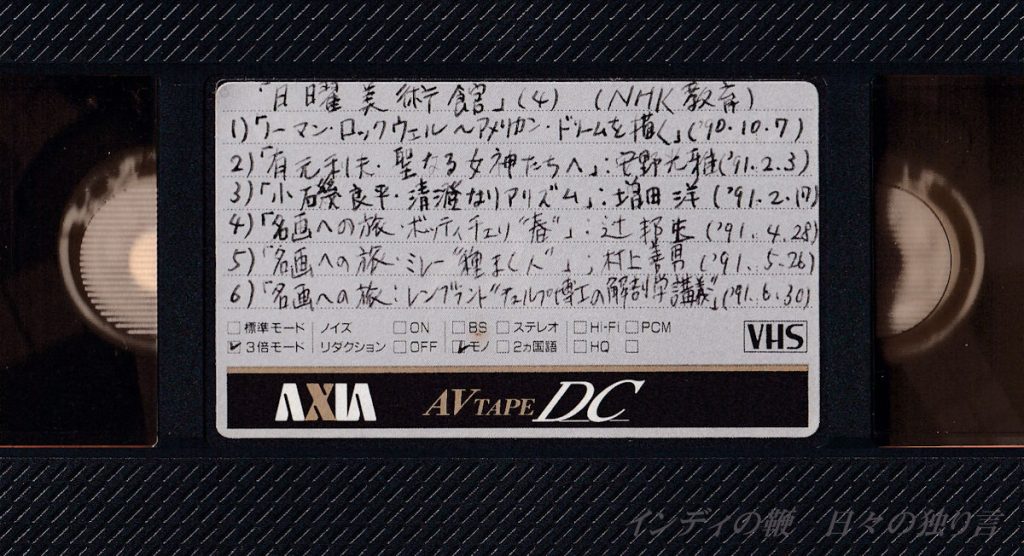 「日曜美術館」(4) (NHK教育)
1)「ノーマン・ロックウェル〜アメリカン・ドリームを描く」('90.10.7)
2)「有元利夫・聖なる女神たちへ」:安野光雅('91.2.3)
3)「小石磯良平・清澄なリアリズム」:増田洋('91.2.17)
4)「名画への旅・ボッティチェリ"春"」:辻邦生('91.4.28)
5)「名画への旅・ミレー"種まく人"」;村上善男('91.5.26)
6)「名画への旅:レンブラント"チュルプ博士の解剖学講義"」('91.6.30)
標準モード ノイズ ON BS ステレオ Hi-Fi PCM
3倍モード リダクション OFF モノ 2ヵ国語 HQ VHS
AXIA AV TAPE DC
インディの鞭 日々の独り言